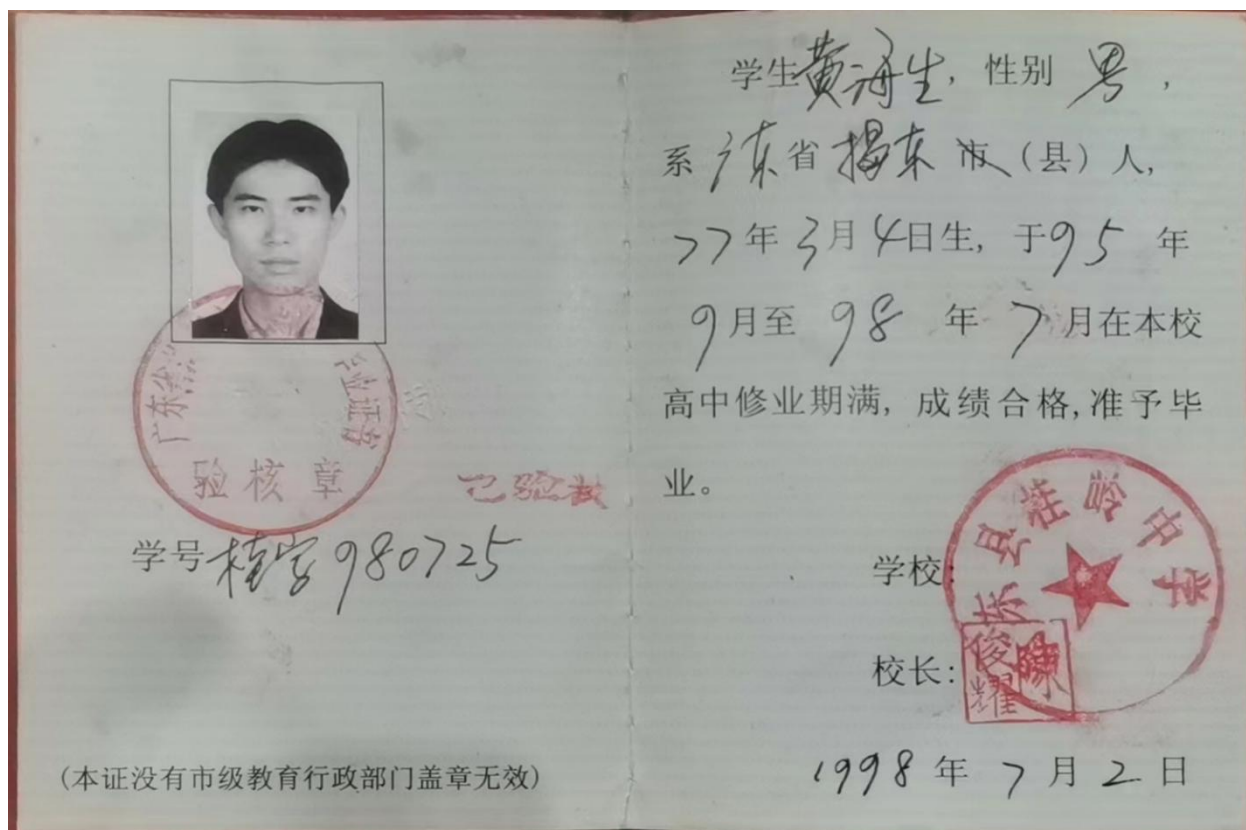 广东省
毕业证书
验核章
已验核
学号 桂字980725
(本证没有市级教育行政部门盖章无效)
学生黄海生，性别 男，
系 广东省揭东市（县）人，
77年3月4日生，于95年
9月至98年7月在本校
高中修业期满，成绩合格,准予毕
业。
学校:
东县桂岭中学
校长:
陈俊耀
1998年7月2日